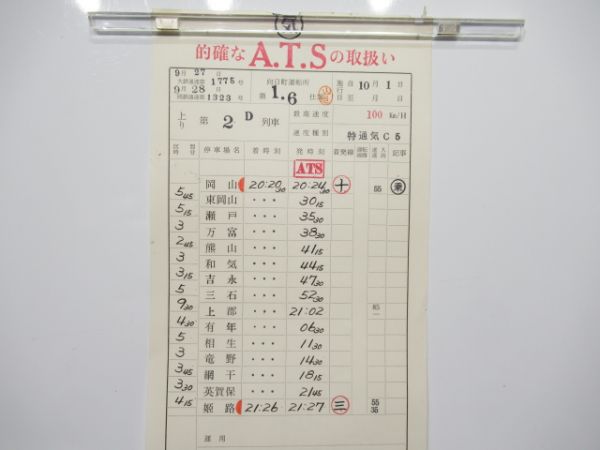 気
的確な A.T.S の取扱い
9月27日
大鉄達第 1775 号
9月28日
1323 号
向日町運転所
第 1.6 仕業
施行 自 10月 1日
至 月 日
上り 第 2 D 列車
最高速度 100 Km/H
速度種別 特通気C5
区間 時分 停車場名 着時刻 発時刻 着発線 記事
ATS
岡山 20:20 30 20:24 30 十 55 乗
5 45 東岡山 ・・・ 30 15
5 15 瀬戸 ・・・ 35 30
3 万富 ・・・ 38 30
2 45 熊山 ・・・ 41 15
3 和気 ・・・ 44 15
3 15 吉永 ・・・ 47 30
5 三石 ・・・ 52 30
9 30 上郡 ・・・ 21:02 85
4 30 有年 ・・・ 06 30
5 相生 ・・・ 11 30
3 竜野 ・・・ 14 30
3 45 網干 ・・・ 18 15
3 30 英賀保 ・・・ 21 45
4 15 姫路 21:26 21:27 三 55 35
運用